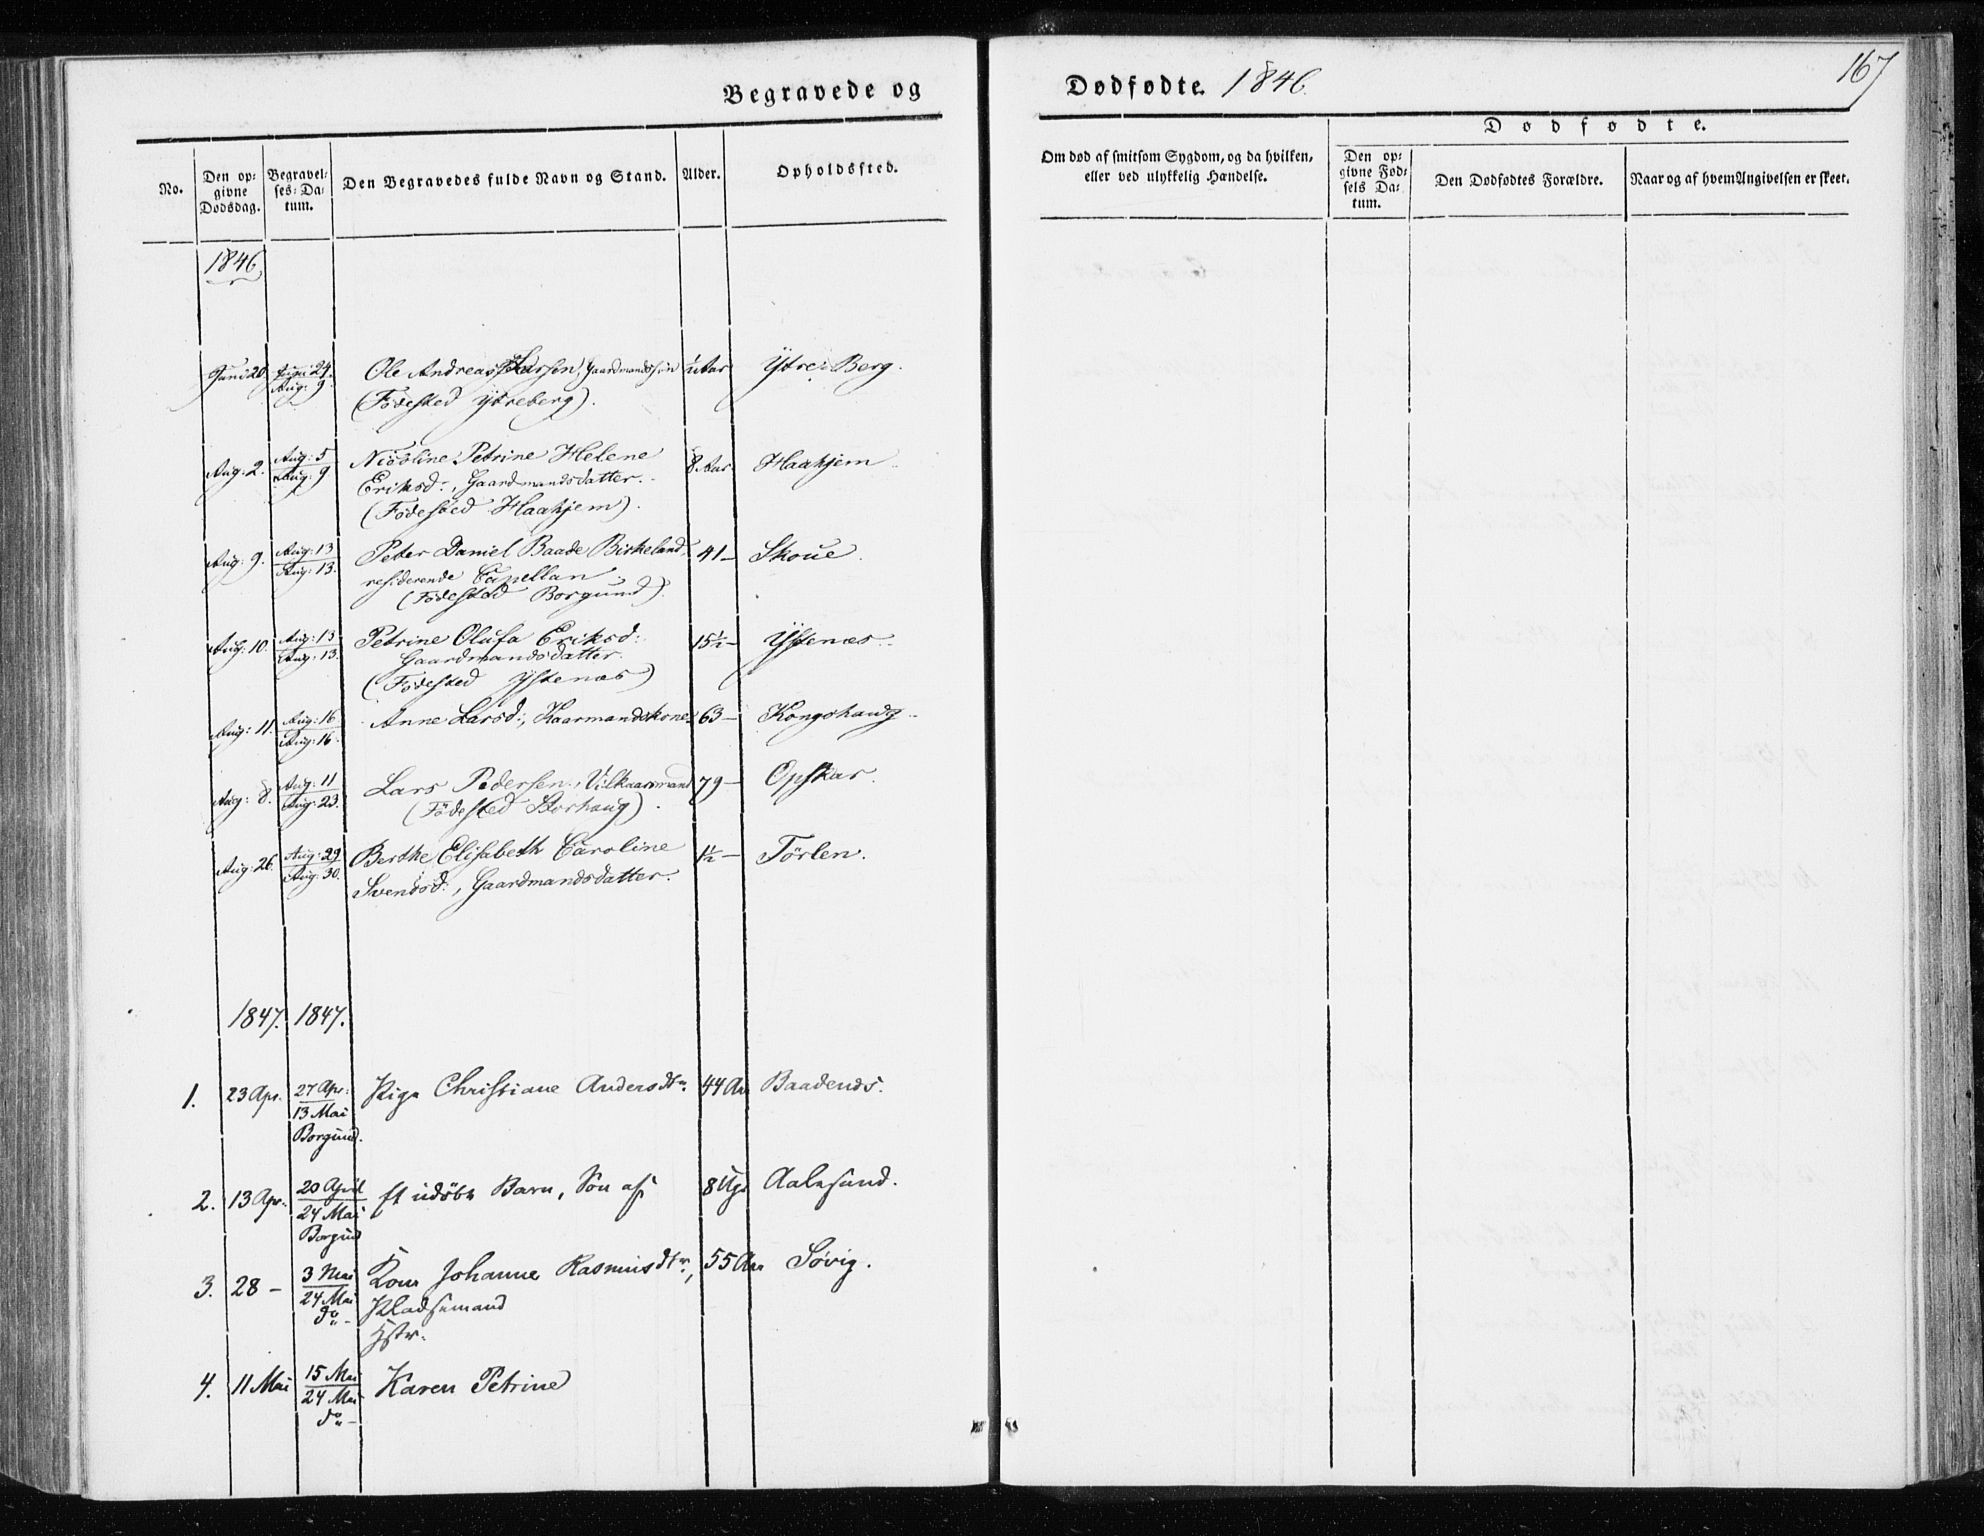 Begravede og
Dødfødte. 1846.
167
No.
Den op-
givne
Dødsdag.
Begravel-
ses-Da-
tum.
Den Begravedes fulde Navn og Stand.
Alder.
Opholdssted.
Om død af smitsom Sygdom, og da hvilken,
eller ved ulykkelig Hændelse.
Dødfødte.
Den op-
givne Fød-
sels Da-
tum.
Den Dødfødtes Forældre.
Naar og af hvem Angivelsen er skeet.
1846
Juni 20 Juni 24. Ole Andreas Larsen, Gaardmandssøn Aar Ytre Berg.
Aug: 9 (Födested Ytreberg).
Aug: 2. Aug: 5 Nicoline Petrine Helene 8 Aar Haahjem
Aug: 9 Eriksd:, Gaardmandsdatter.
(Födested Haahjem).
Aug: 9. Aug: 13 Peter Daniel Baade Birkeland 41– Skoue.
Aug: 13. residerende Capellan
(Födested Borgund).
Aug: 10. Aug: 13 Petrine Olufa Eriksd: 15½– Ystenæs.
Aug: 13. Gaardmandsdatter.
(Födested Ystenæs)
Aug: 11. Aug: 16 Anne Larsd:, Kaarmandskone 63– Kongshaug
Aug: 16
Aug: 8. Aug: 11 Lars Pedersen, Vilkaarsmand 79– Opskar.
Aug: 23. (Födested Storhaug).
Aug: 26. Aug: 29 Berthe Elisabeth Caroline 1½– Törlen.
Aug: 30. Svendsd:, Gaardmandsdatter.
1847. 1847.
1. 23 Apr. 27 Apr: Pige Christiane Andersdtr 44 Aar
13 Mai
Borgund.
2. 13 Apr. 20 April Et udøbt Barn, Søn af 8 Ugr Aalesund.
24 Mai
Borgund
3. 28 – 3 Mai Kone Johanne Rasmusdtr, 55 Aar Søvig.
24 Mai Pladsemand
do –
4. 11 Mai 15 Mai Karen Petrine
24 Mai
do –